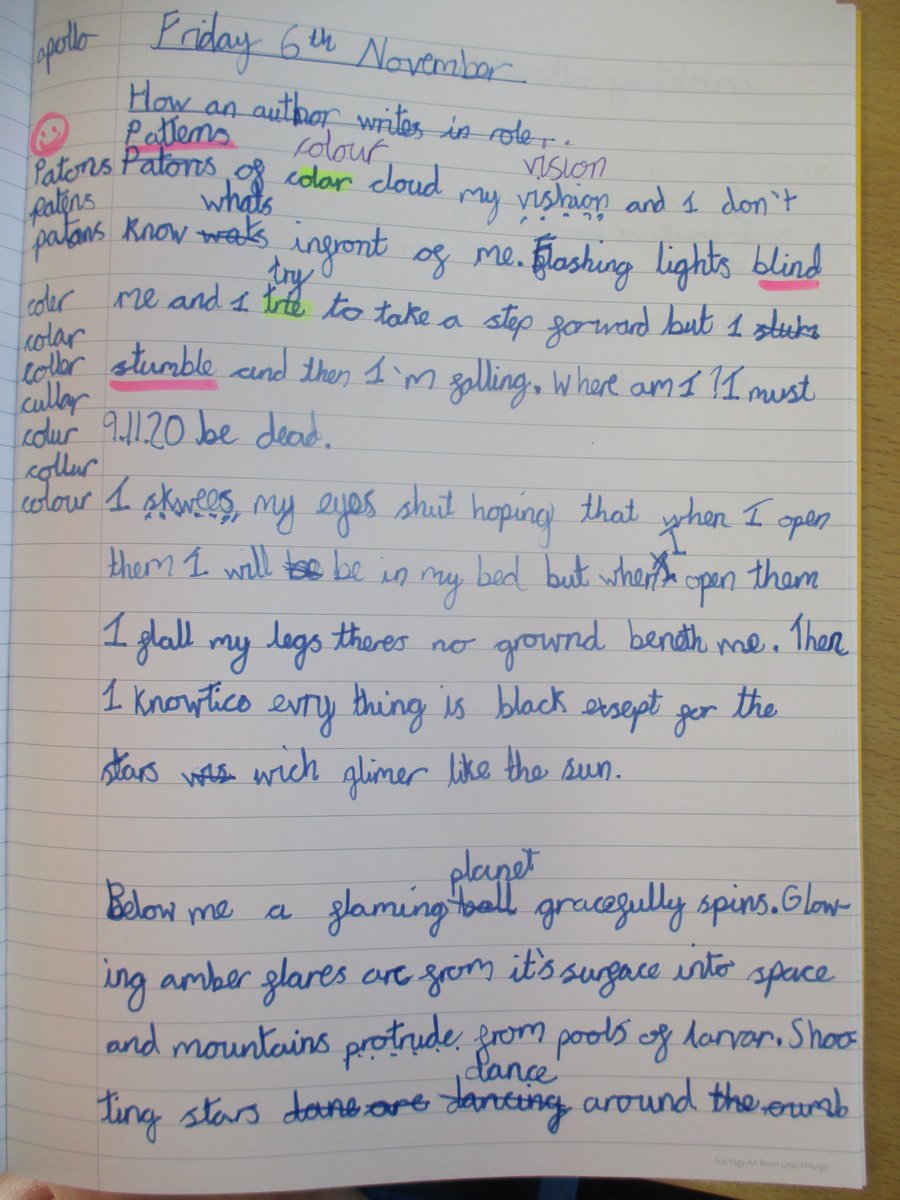 apollo Friday 6th November
How an author writes in role...
Patterns
colour vision
Patons Patons of colar cloud my vishion and I don't
patens whats
patans know wats infront of me. Flashing lights blind
try
coler me and I trie to take a step forward but I stuk
colar
coller stumble and then I'm falling. Where am I? I must
cullar
colur 9.11.20 be dead.
collur
colour I skwees my eyes shut hoping that when I open
I
them I will be be in my bed but when open them
I flall my legs theres no grownd beneth me. Then
I knowtico evry thing is black exsept for the
stars was wich glimer like the sun.
planet
Below me a flaming ball gracefully spins. Glow-
ing amber flares arc from it's surface into space
and mountains protrude from pools of larvar. Shoo-
dance
ting stars dane are dancing around the oumb
Full Page A4 8mm Lines+Margin